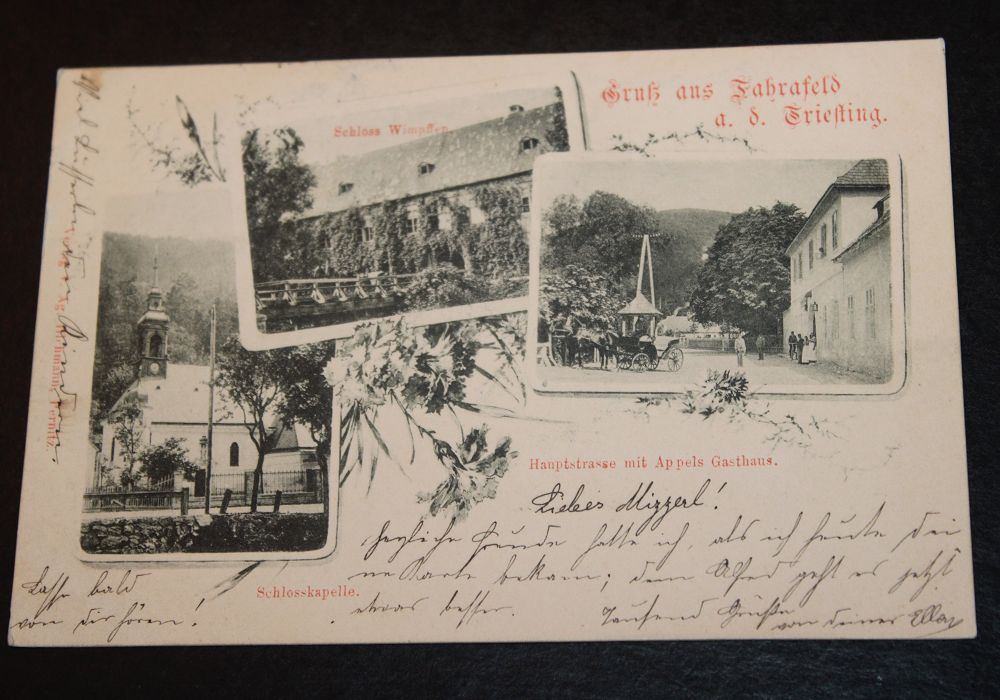 Gruß aus Fahrafeld
a. d. Triesting.
Schloss Wimpffen.
Hauptstrasse mit Appels Gasthaus.
Schlosskapelle.
Liebes Mizzerl!
herzliche Freude hatte ich, als ich heute dei
ne Karte bekam; dem Alfred geht es jetzt
etwas besser. Tausend Grüße
von deiner Ella
Lasse bald
von dir hören!
Pernitz.